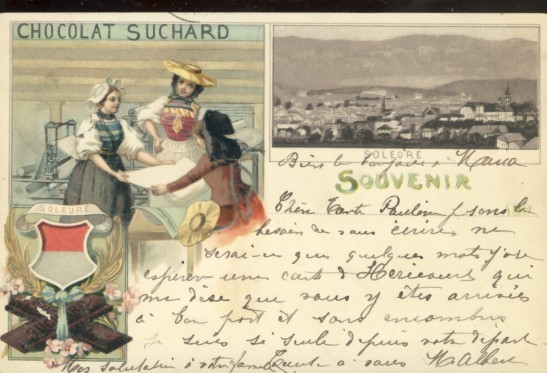 CHOCOLAT SUCHARD
SOLEURE
SOUVENIR
SOLEURE
Chère Tante Pauline je sens le
besoin de vous écrire ne
serai-ce que quelques mots j'ose
espérer une carte d'Héricourt qui
me dise que vous y êtes arrivés
à bon port et sans encombres
je suis si seule depuis votre départ
Mes salutations à votre famille à vous M Albert